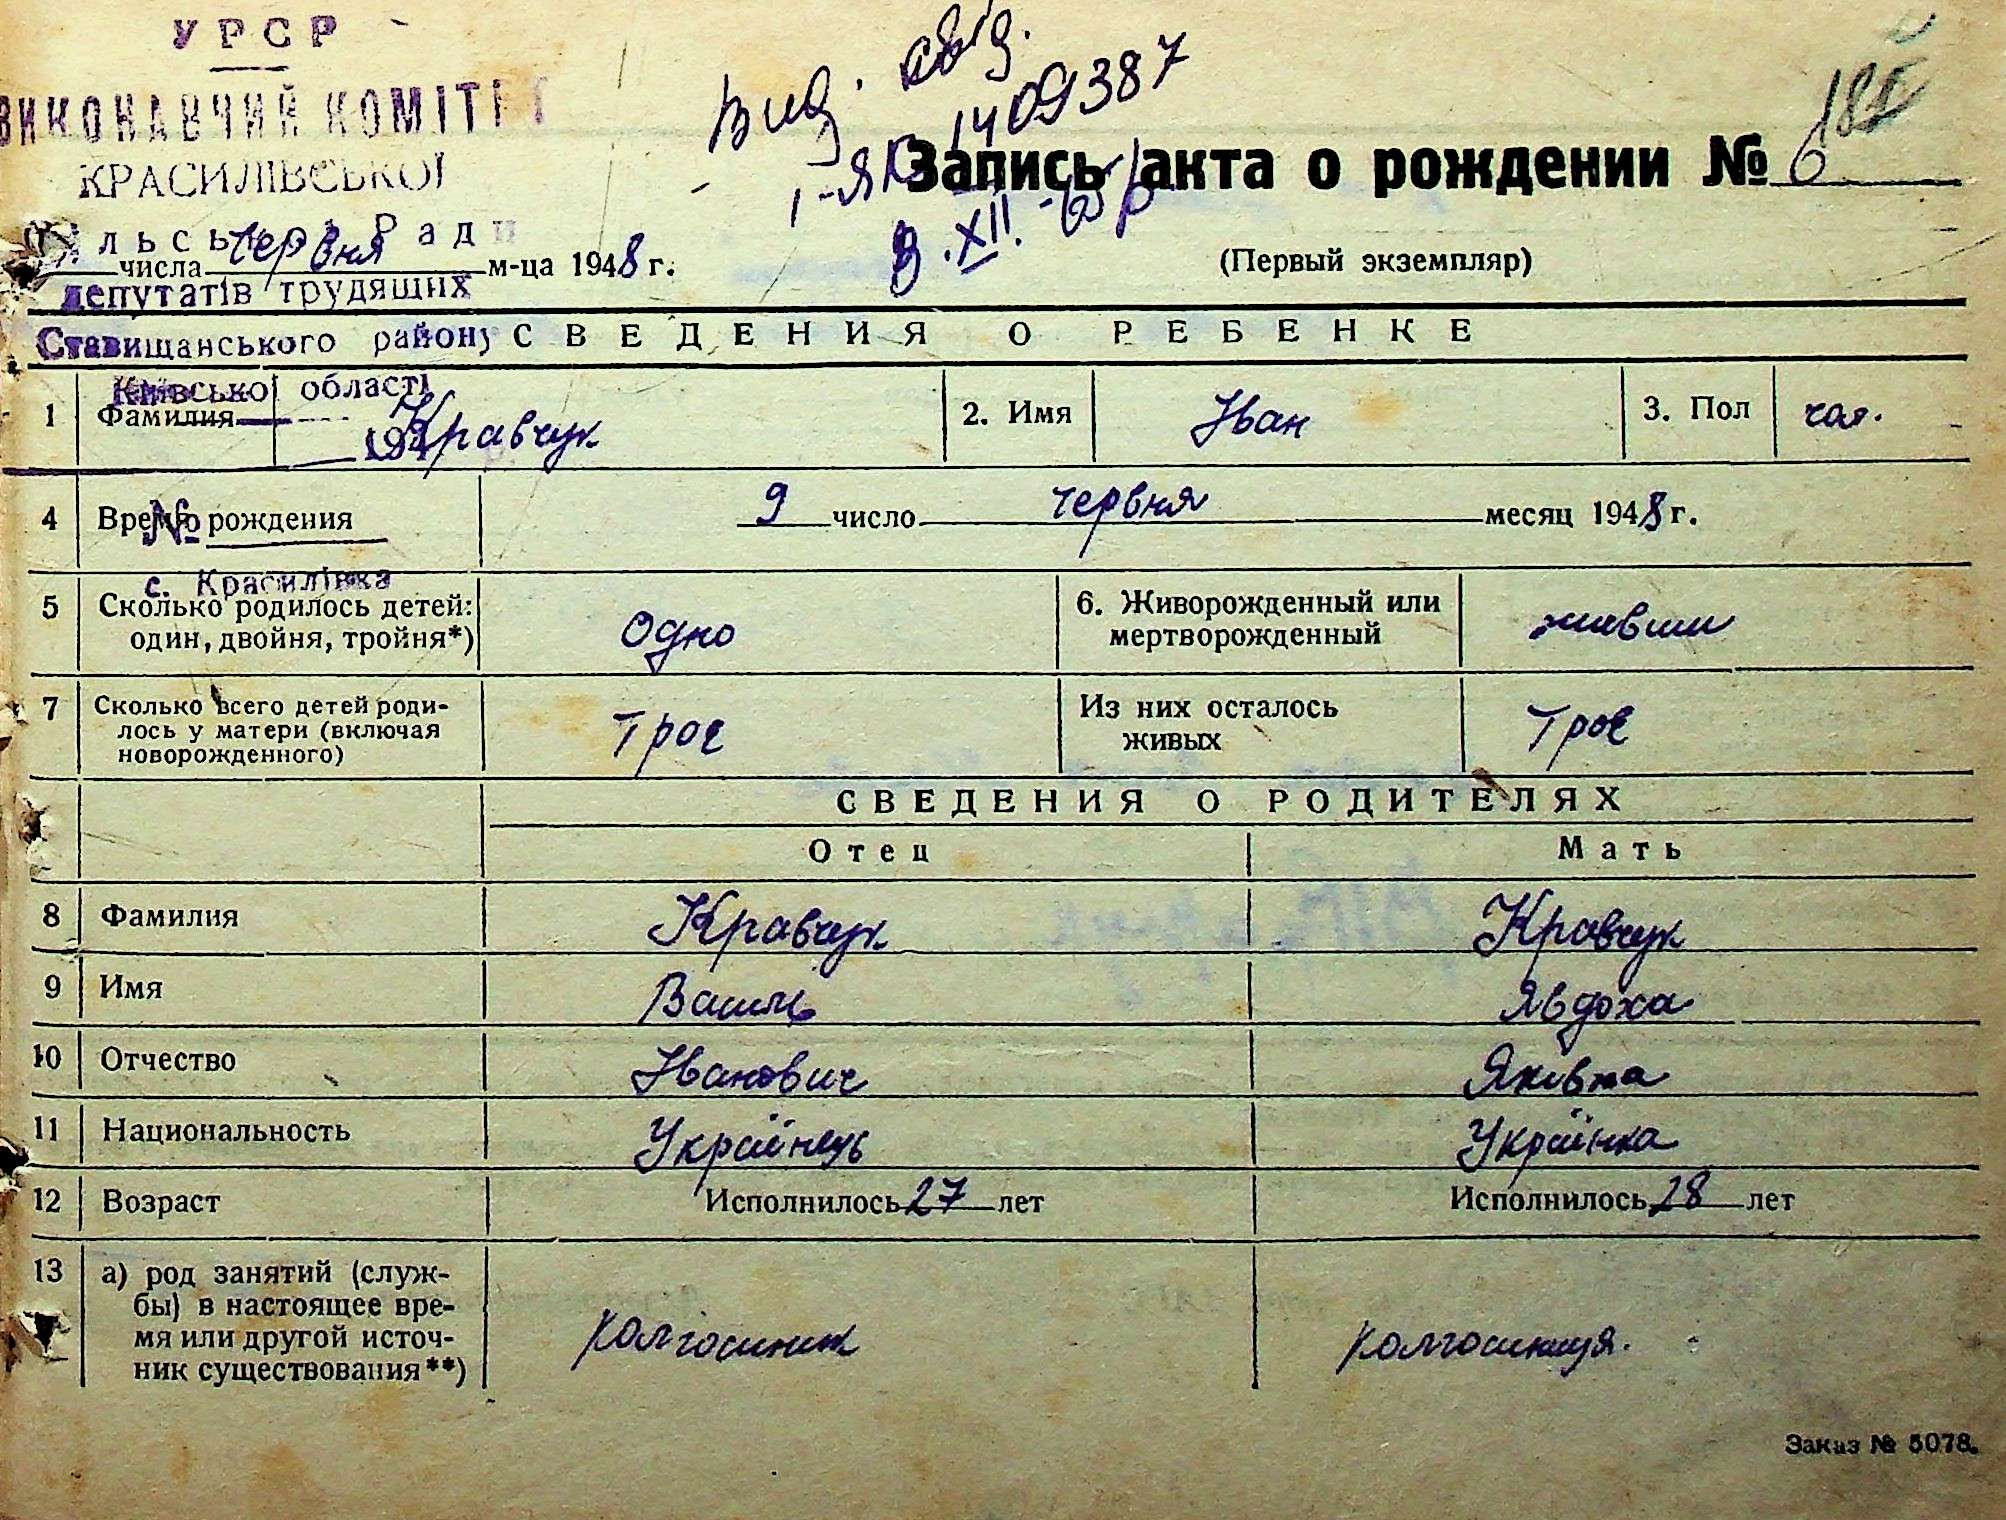 УРСР
ВИКОНАВЧИЙ КОМІТЕТ
КРАСИЛІВСЬКОЇ
Ради
депутатів трудящих
Ставищанського району
Київської області
194
№
с. Красилівка
вид. свід.
І-ЯК 1409387
8.XII.-65р
182
Запись акта о рождении № 6
числа червня м-ца 1948 г.
(Первый экземпляр)
СВЕДЕНИЯ О РЕБЕНКЕ
1 Фамилия Кравчук 2. Имя Іван 3. Пол чол.
4 Время рождения 9 число червня месяц 1948 г.
5 Сколько родилось детей: один, двойня, тройня*) Одно 6. Живорожденный или мертворожденный живим
7 Сколько всего детей родилось у матери (включая новорожденного) Троє Из них осталось живых Троє
СВЕДЕНИЯ О РОДИТЕЛЯХ
Отец Мать
8 Фамилия Кравчук Кравчук
9 Имя Василь Явдоха
10 Отчество Іванович Яківна
11 Национальность Українець Українка
12 Возраст Исполнилось 27 лет Исполнилось 28 лет
13 а) род занятий (служ-
бы) в настоящее вре-
мя или другой источ-
ник существования**) колгоспник колгоспниця.
Заказ № 5078.